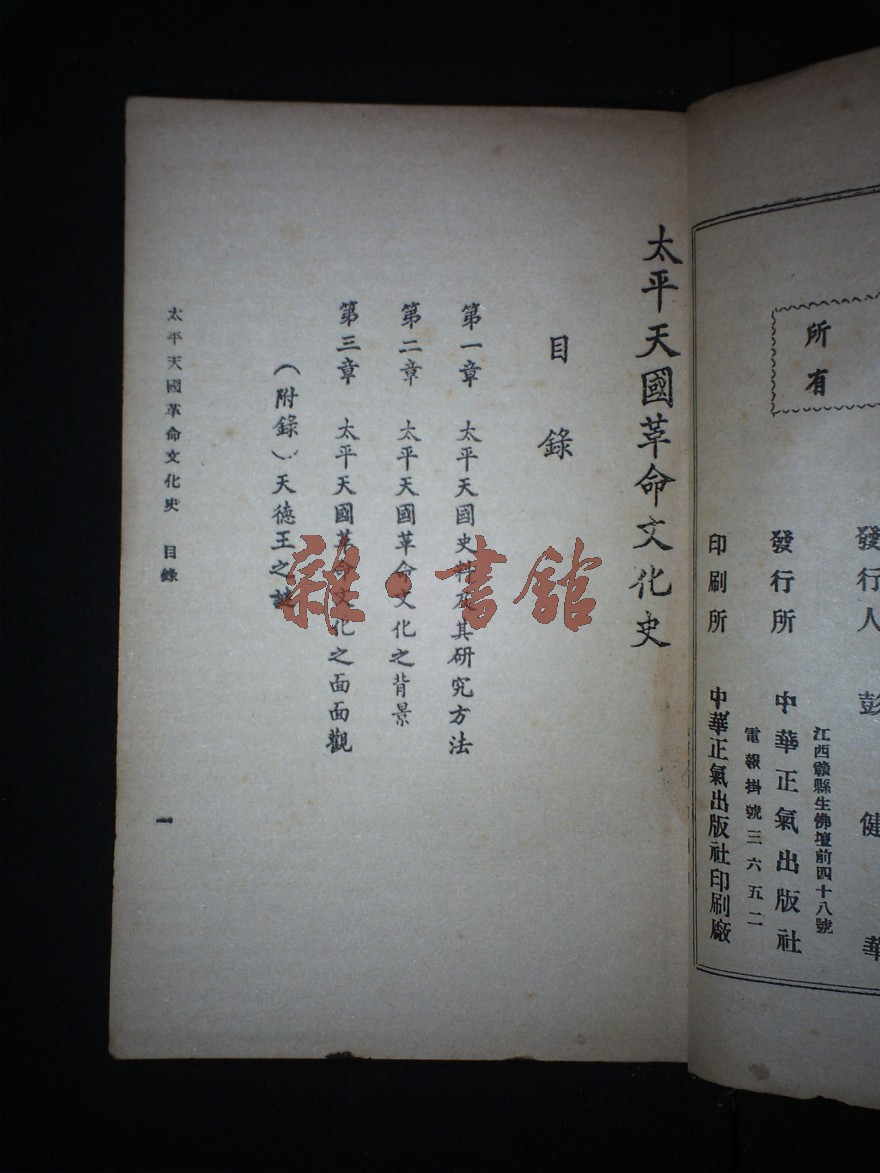 所有
發行人 彭健華
江西贛縣生佛壇前四十八號
發行所 中華正氣出版社
電報掛號三六五二
印刷所 中華正氣出版社印刷廠
太平天國革命文化史
目錄
第一章 太平天國史料及其研究方法
第二章 太平天國革命文化之背景
第三章 太平天國革命文化之面面觀
(附錄)天德王之謎
太平天國革命文化史 目錄
一
雜·書館